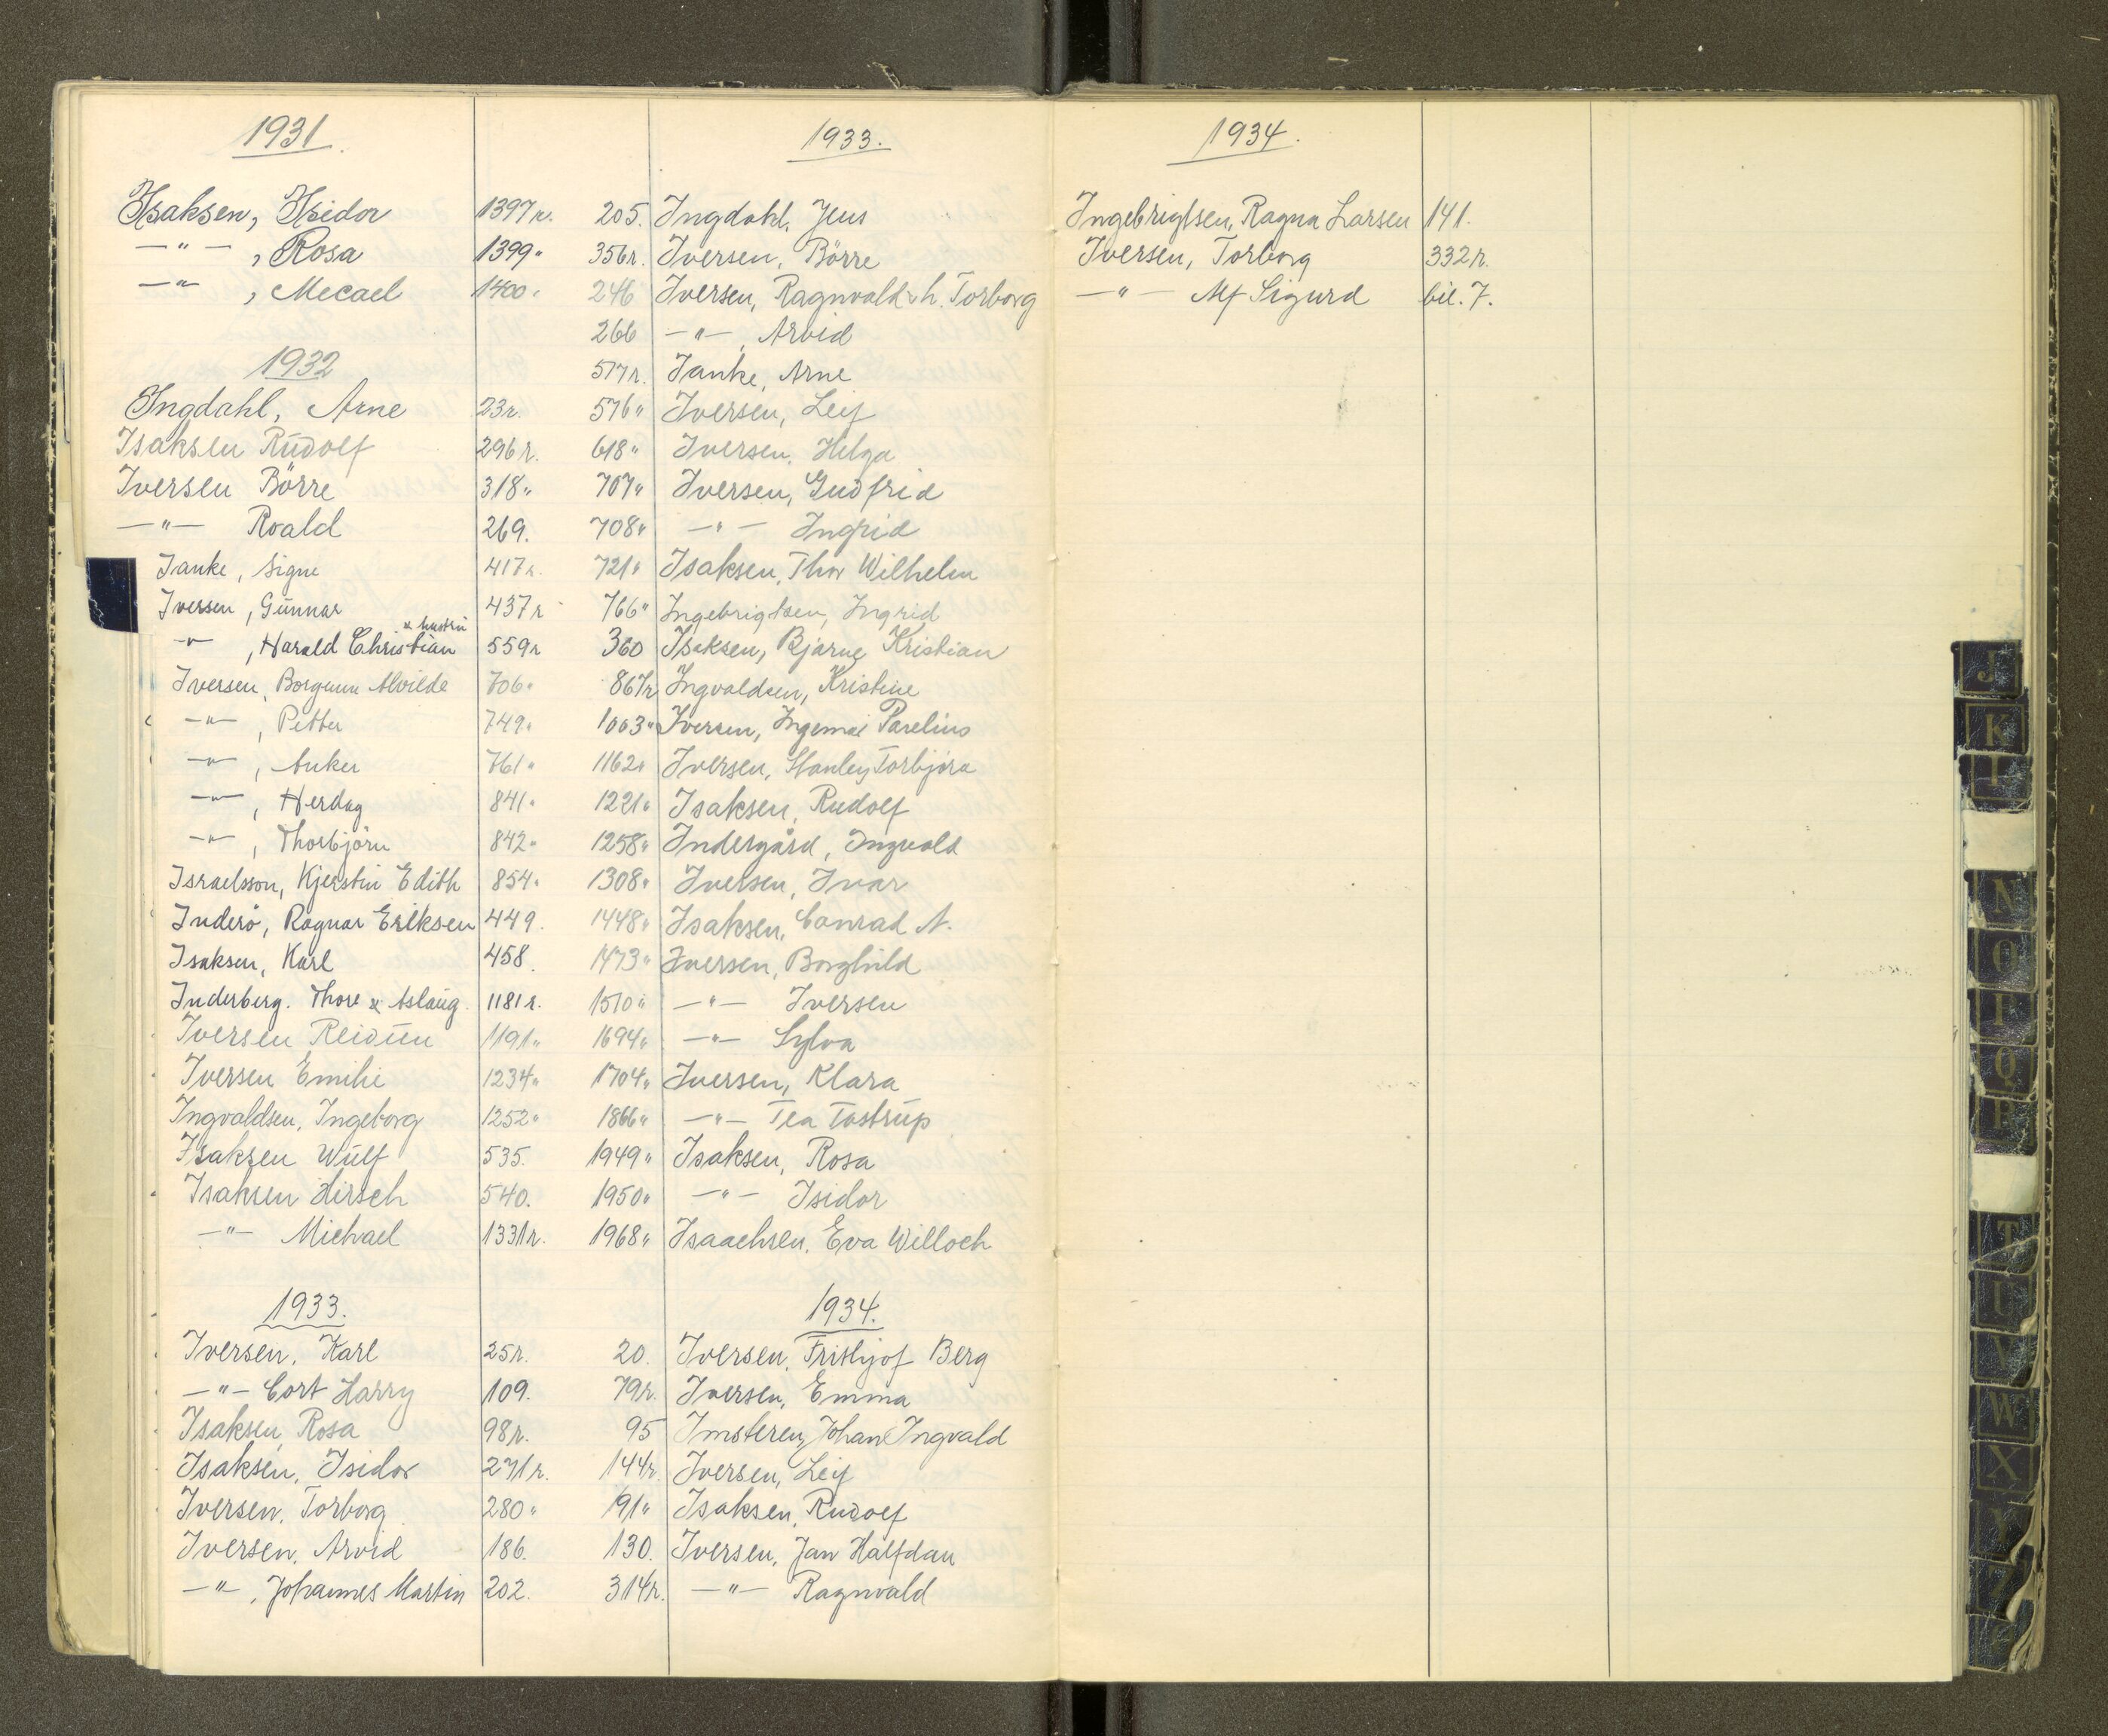 1931.
Isaksen, Isidor 1397r.
—"— , Rosa 1399"
—"— , Mecael 1400"
1932
Ingdahl, Arne 23r.
Isaksen Rudolf 296r.
Iversen Börre 318"
—"— Roald 269.
Janke, Signe 417r.
Iversen, Gunnar 437r
—"— , Harald Christian & hustru 559r
Iversen, Borgunn Alvilde 706"
—"— , Petter 749"
—"— , Anker 761"
—"— , Herdag 841"
—"— , Thorbjörn 842"
Israelsson, Kjerstin Edith 854"
Inderö, Ragnar Eriksen 449.
Isaksen, Karl 458.
Inderberg. Thore & Aslaug 1181r.
Iversen Reidun 1191"
Iversen Emilie 1234"
Ingvaldsen, Ingeborg 1252"
Isaksen Wulf 535.
Isaksen Hirsch 540.
—"— Michael 1331r.
1933.
Iversen, Karl 25r.
—"— Cort Harry 109.
Isaksen, Rosa 98r.
Isaksen, Isidor 271r.
Iversen, Torborg 280"
Iversen, Arvid 186.
—"— , Johannes Martin 202.
1933.
205. Ingdahl, Jens
356r. Iversen, Börre
246 Iversen, Ragnvald & h. Torborg
266 —"— , Arvid
517r. Janke, Arne
576" Iversen, Leif
618" Iversen, Helga
707" Iversen, Gudfrid
708" —"— Ingrid
721" Isaksen, Thor Wilhelm
766" Ingebrigtsen, Ingrid
360 Isaksen, Bjarne Kristian
867r Ingvaldsen, Kristine
1003" Iversen, Ingemar Parelius
1162" Iversen, Stanley Torbjörn
1221" Isaksen, Rudolf
1258" Indergård, Ingvald
1308" Iversen, Ivar
1448" Isaksen, Conrad A.
1473" Iversen, Borghild
1510" —"— Iversen
1694" —"— Sylva
1704" Iversen, Klara
1866" —"— Tea Tostrup
1949" Isaksen, Rosa
1950" —"— Isidor
1968" Isaachsen, Eva Willoch
1934.
20. Iversen, Frithjof Berg
79r. Iversen, Emma
95 Imsteren, Johan Ingvald
144r. Iversen, Leif
191" Isaksen, Rudolf
130. Iversen, Jan Halfdan
314r. —"— Ragnvald
1934.
Ingebrigtsen, Ragna Larsen 141.
Iversen, Torborg 332r.
—"— Alf Sigurd bil. 7.
J
K
L
N
O
P
Q
R
T
U
V
W
X
Y
Z